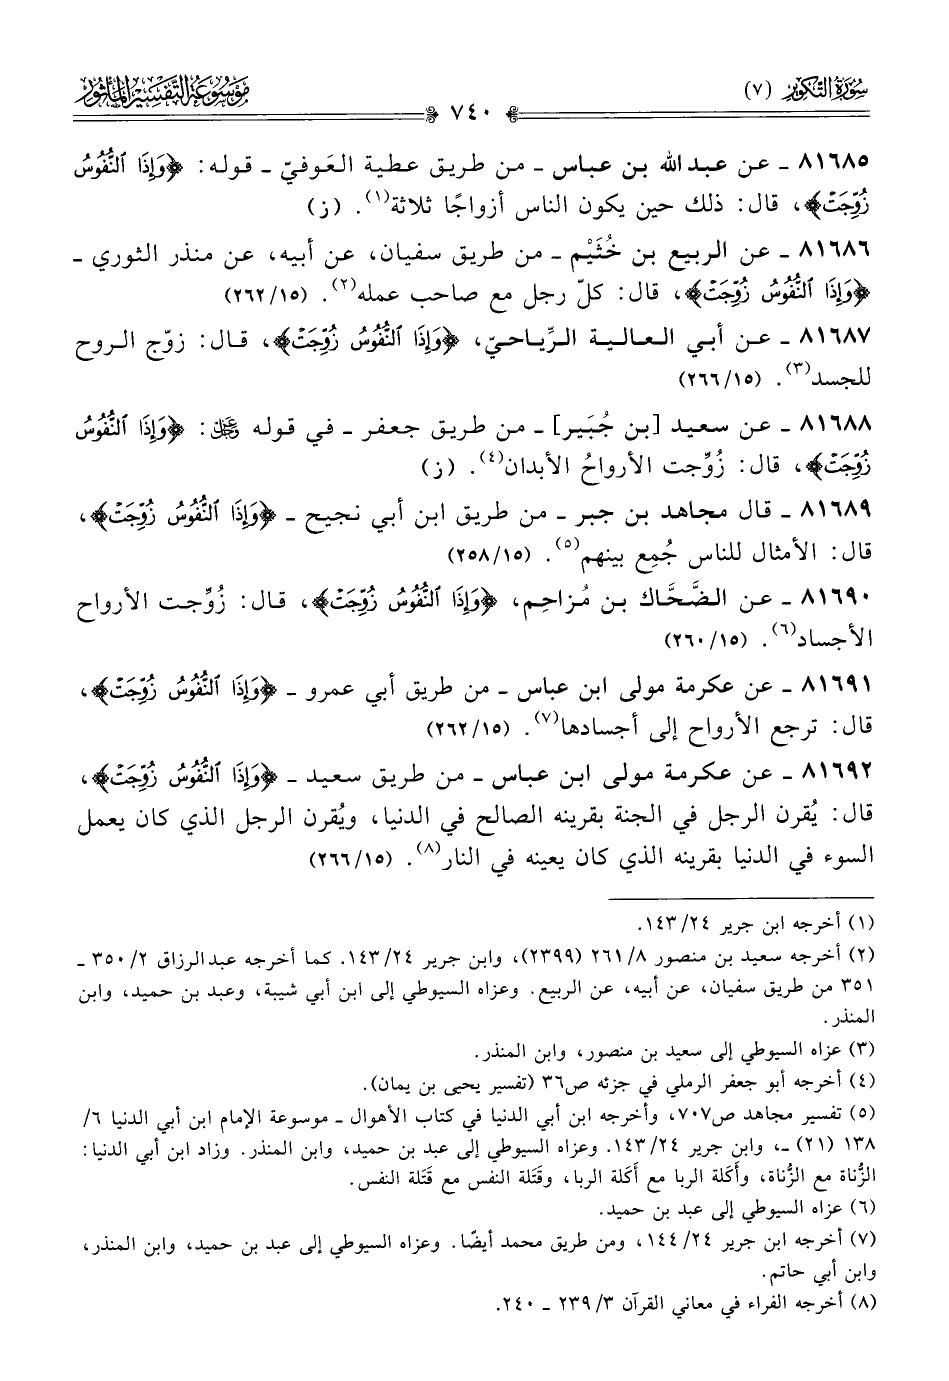 سُورَةُ التَّكْوِيرِ (٧)
٧٤٠
مَوْسُوعَةُ التَّفْسِيرِ المَأْثُورِ
٨١٦٨٥ ـ عن عبد الله بن عباس ـ من طريق عطية العَوفيّ ـ قوله: ﴿وَإِذَا ٱلنُّفُوسُ
زُوِّجَتْ﴾، قال: ذلك حين يكون الناس أزواجًا ثلاثة(١). (ز)
٨١٦٨٦ ـ عن الربيع بن خُثَيْم ـ من طريق سفيان، عن أبيه، عن منذر الثوري ـ
﴿وَإِذَا ٱلنُّفُوسُ زُوِّجَتْ﴾، قال: كلّ رجل مع صاحب عمله(٢). (١٥/ ٢٦٢)
٨١٦٨٧ ـ عن أبي العالية الرِّياحيّ، ﴿وَإِذَا ٱلنُّفُوسُ زُوِّجَتْ﴾، قال: زوّج الروح
للجسد(٣). (١٥/ ٢٦٦)
٨١٦٨٨ ـ عن سعيد [بن جُبَير] ـ من طريق جعفر ـ في قوله ﷿: ﴿وَإِذَا ٱلنُّفُوسُ
زُوِّجَتْ﴾، قال: زُوِّجت الأرواحُ الأبدان(٤). (ز)
٨١٦٨٩ ـ قال مجاهد بن جبر ـ من طريق ابن أبي نجيح ـ ﴿وَإِذَا ٱلنُّفُوسُ زُوِّجَتْ﴾،
قال: الأمثال للناس جُمِع بينهم(٥). (١٥/ ٢٥٨)
٨١٦٩٠ ـ عن الضَّحَّاك بن مُزاحِم، ﴿وَإِذَا ٱلنُّفُوسُ زُوِّجَتْ﴾، قال: زُوِّجت الأرواح
الأجساد(٦). (١٥/ ٢٦٠)
٨١٦٩١ ـ عن عكرمة مولى ابن عباس ـ من طريق أبي عمرو ـ ﴿وَإِذَا ٱلنُّفُوسُ زُوِّجَتْ﴾،
قال: ترجع الأرواح إلى أجسادها(٧). (١٥/ ٢٦٢)
٨١٦٩٢ ـ عن عكرمة مولى ابن عباس ـ من طريق سعيد ـ ﴿وَإِذَا ٱلنُّفُوسُ زُوِّجَتْ﴾،
قال: يُقرن الرجل في الجنة بقرينه الصالح في الدنيا، ويُقرن الرجل الذي كان يعمل
السوء في الدنيا بقرينه الذي كان يعينه في النار(٨). (١٥/ ٢٦٦)
(١) أخرجه ابن جرير ٢٤/ ١٤٣.
(٢) أخرجه سعيد بن منصور ٨/ ٢٦١ (٢٣٩٩)، وابن جرير ٢٤/ ١٤٣. كما أخرجه عبد الرزاق ٢/ ٣٥٠ ـ
٣٥١ من طريق سفيان، عن أبيه، عن الربيع. وعزاه السيوطي إلى ابن أبي شيبة، وعبد بن حميد، وابن
المنذر.
(٣) عزاه السيوطي إلى سعيد بن منصور، وابن المنذر.
(٤) أخرجه أبو جعفر الرملي في جزئه ص٣٦ (تفسير يحيى بن يمان).
(٥) تفسير مجاهد ص٧٠٧، وأخرجه ابن أبي الدنيا في كتاب الأهوال ـ موسوعة الإمام ابن أبي الدنيا ٦/
١٣٨ (٢١) ـ، وابن جرير ٢٤/ ١٤٣. وعزاه السيوطي إلى عبد بن حميد، وابن المنذر. وزاد ابن أبي الدنيا:
الزُّناة مع الزُّناة، وأَكَلة الربا مع أَكَلة الربا، وقَتَلة النفس مع قَتَلة النفس.
(٦) عزاه السيوطي إلى عبد بن حميد.
(٧) أخرجه ابن جرير ٢٤/ ١٤٤، ومن طريق محمد أيضًا. وعزاه السيوطي إلى عبد بن حميد، وابن المنذر،
وابن أبي حاتم.
(٨) أخرجه الفراء في معاني القرآن ٣/ ٢٣٩ ـ ٢٤٠.